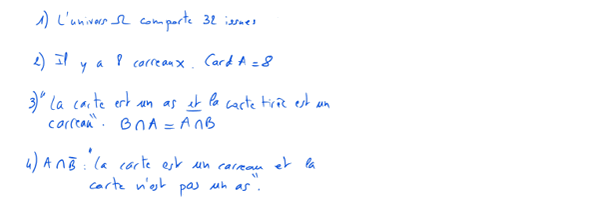 1) L'univers Ω comporte 32 issues
2) Il y a 8 carreaux. Card A = 8
3) "La carte est un as et la carte tirée est un
carreau". B∩A = A∩B
4) A∩B̅ : "la carte est un carreau et la
carte n'est pas un as".